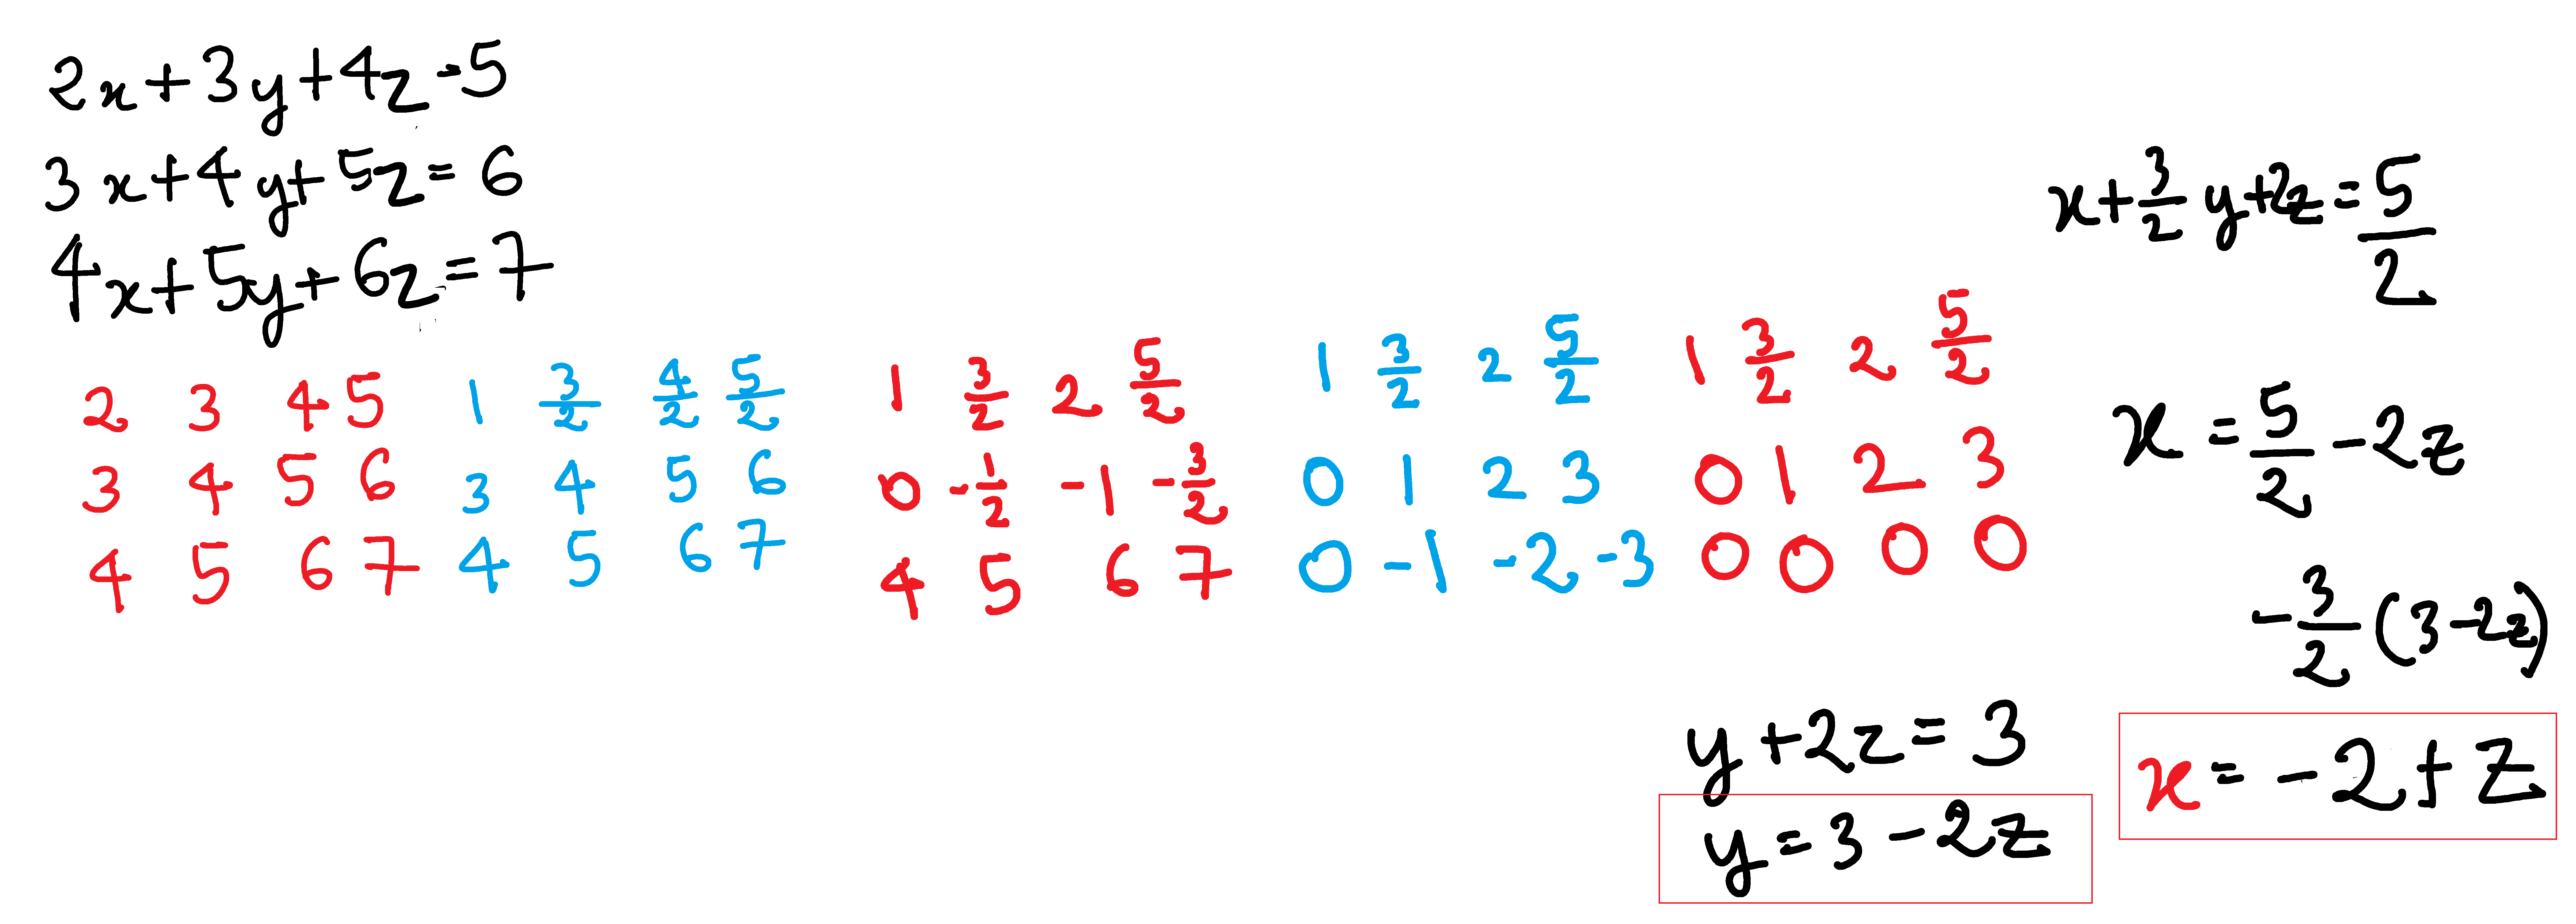 2x+3y+4z=5
3x+4y+5z=6
4x+5y+6z=7
2 3 4 5
3 4 5 6
4 5 6 7
1 3/2 4/2 5/2
3 4 5 6
4 5 6 7
1 3/2 2 5/2
0 -1/2 -1 -3/2
4 5 6 7
1 3/2 2 5/2
0 1 2 3
0 -1 -2 -3
1 3/2 2 5/2
0 1 2 3
0 0 0 0
y+2z=3
y=3-2z
x+3/2 y+2z=5/2
x=5/2-2z
-3/2(3-2z)
x=-2+z